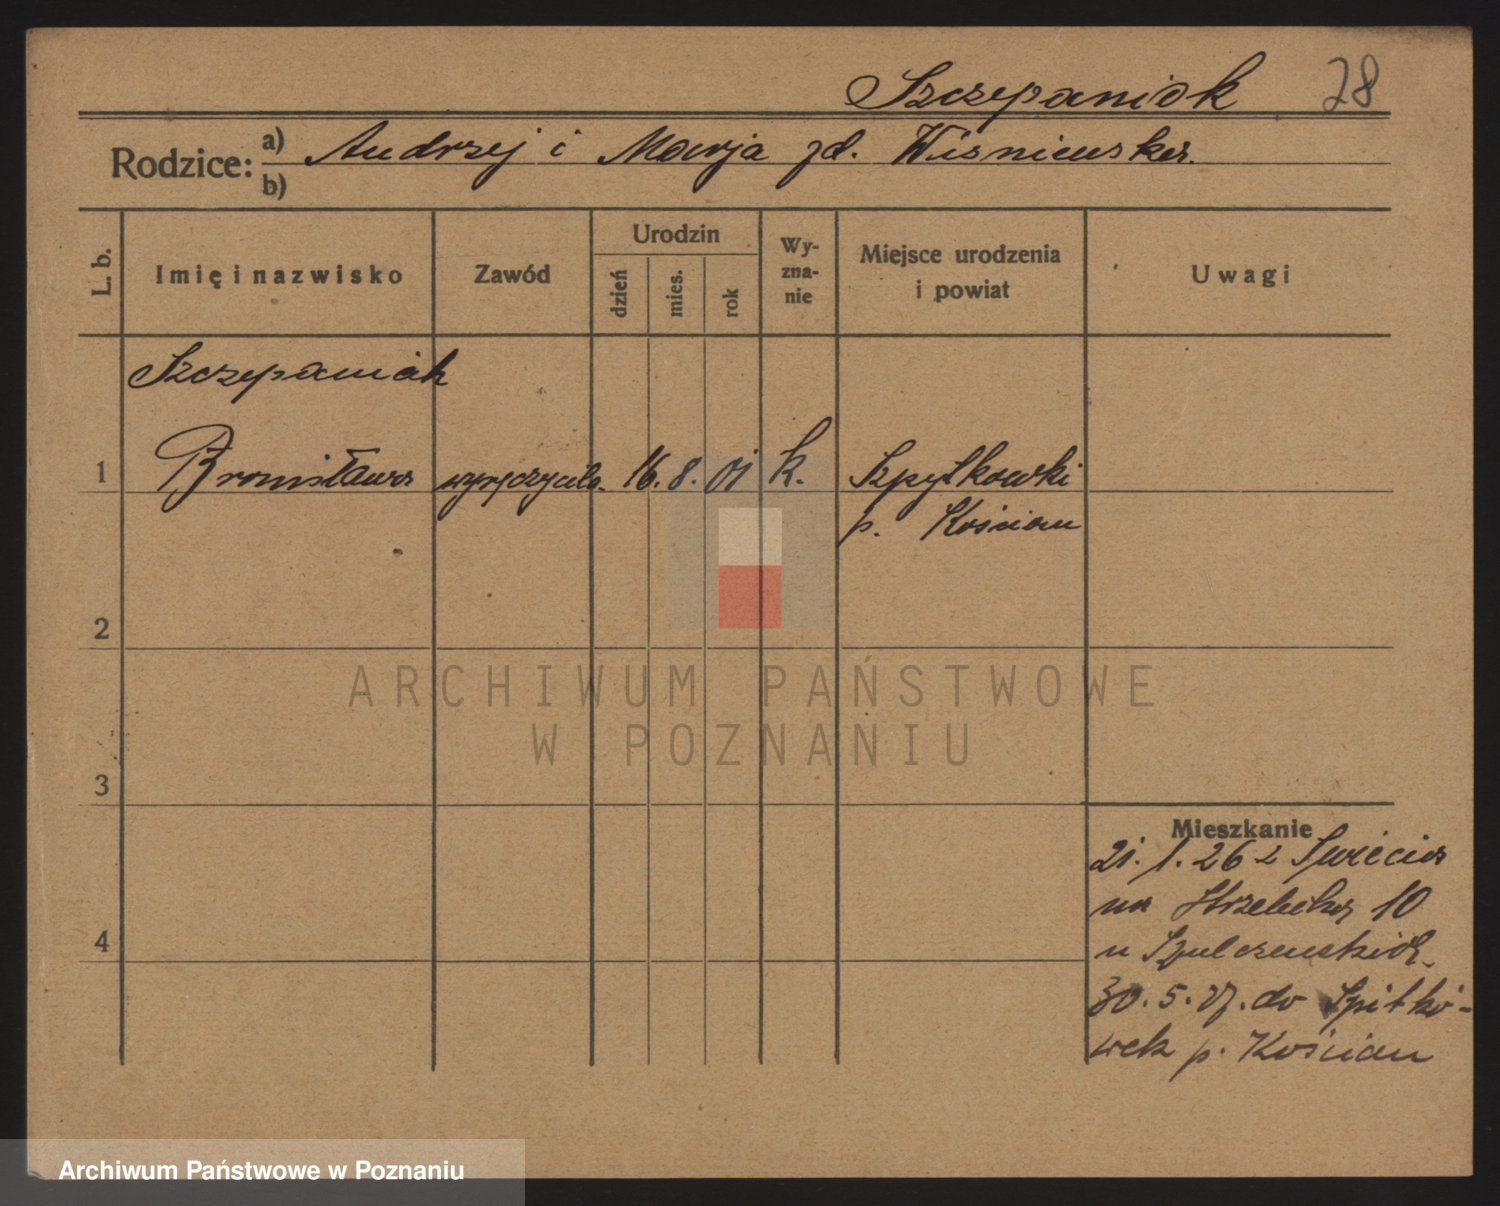 Szczepaniak 28
Rodzice: a) Andrzej i Marja zd. Wisniewska.
b)
L. b.
Imię i nazwisko
Zawód
Urodzin
dzień
mies.
rok
Wy-
zna-
nie
Miejsce urodzenia
i powiat
Uwagi
Szczepaniak
1 Bronisława 16. 8. 01 k. Szpytkowki
p. Kościan
2
3
4
ARCHIWUM PAŃSTWOWE
W POZNANIU
Mieszkanie
21. 1. 26 z
na Strzelecka 10
u Szulczewskich.
30. 5. 27. do Spitkó-
wek p. Kościan
Archiwum Państwowe w Poznaniu